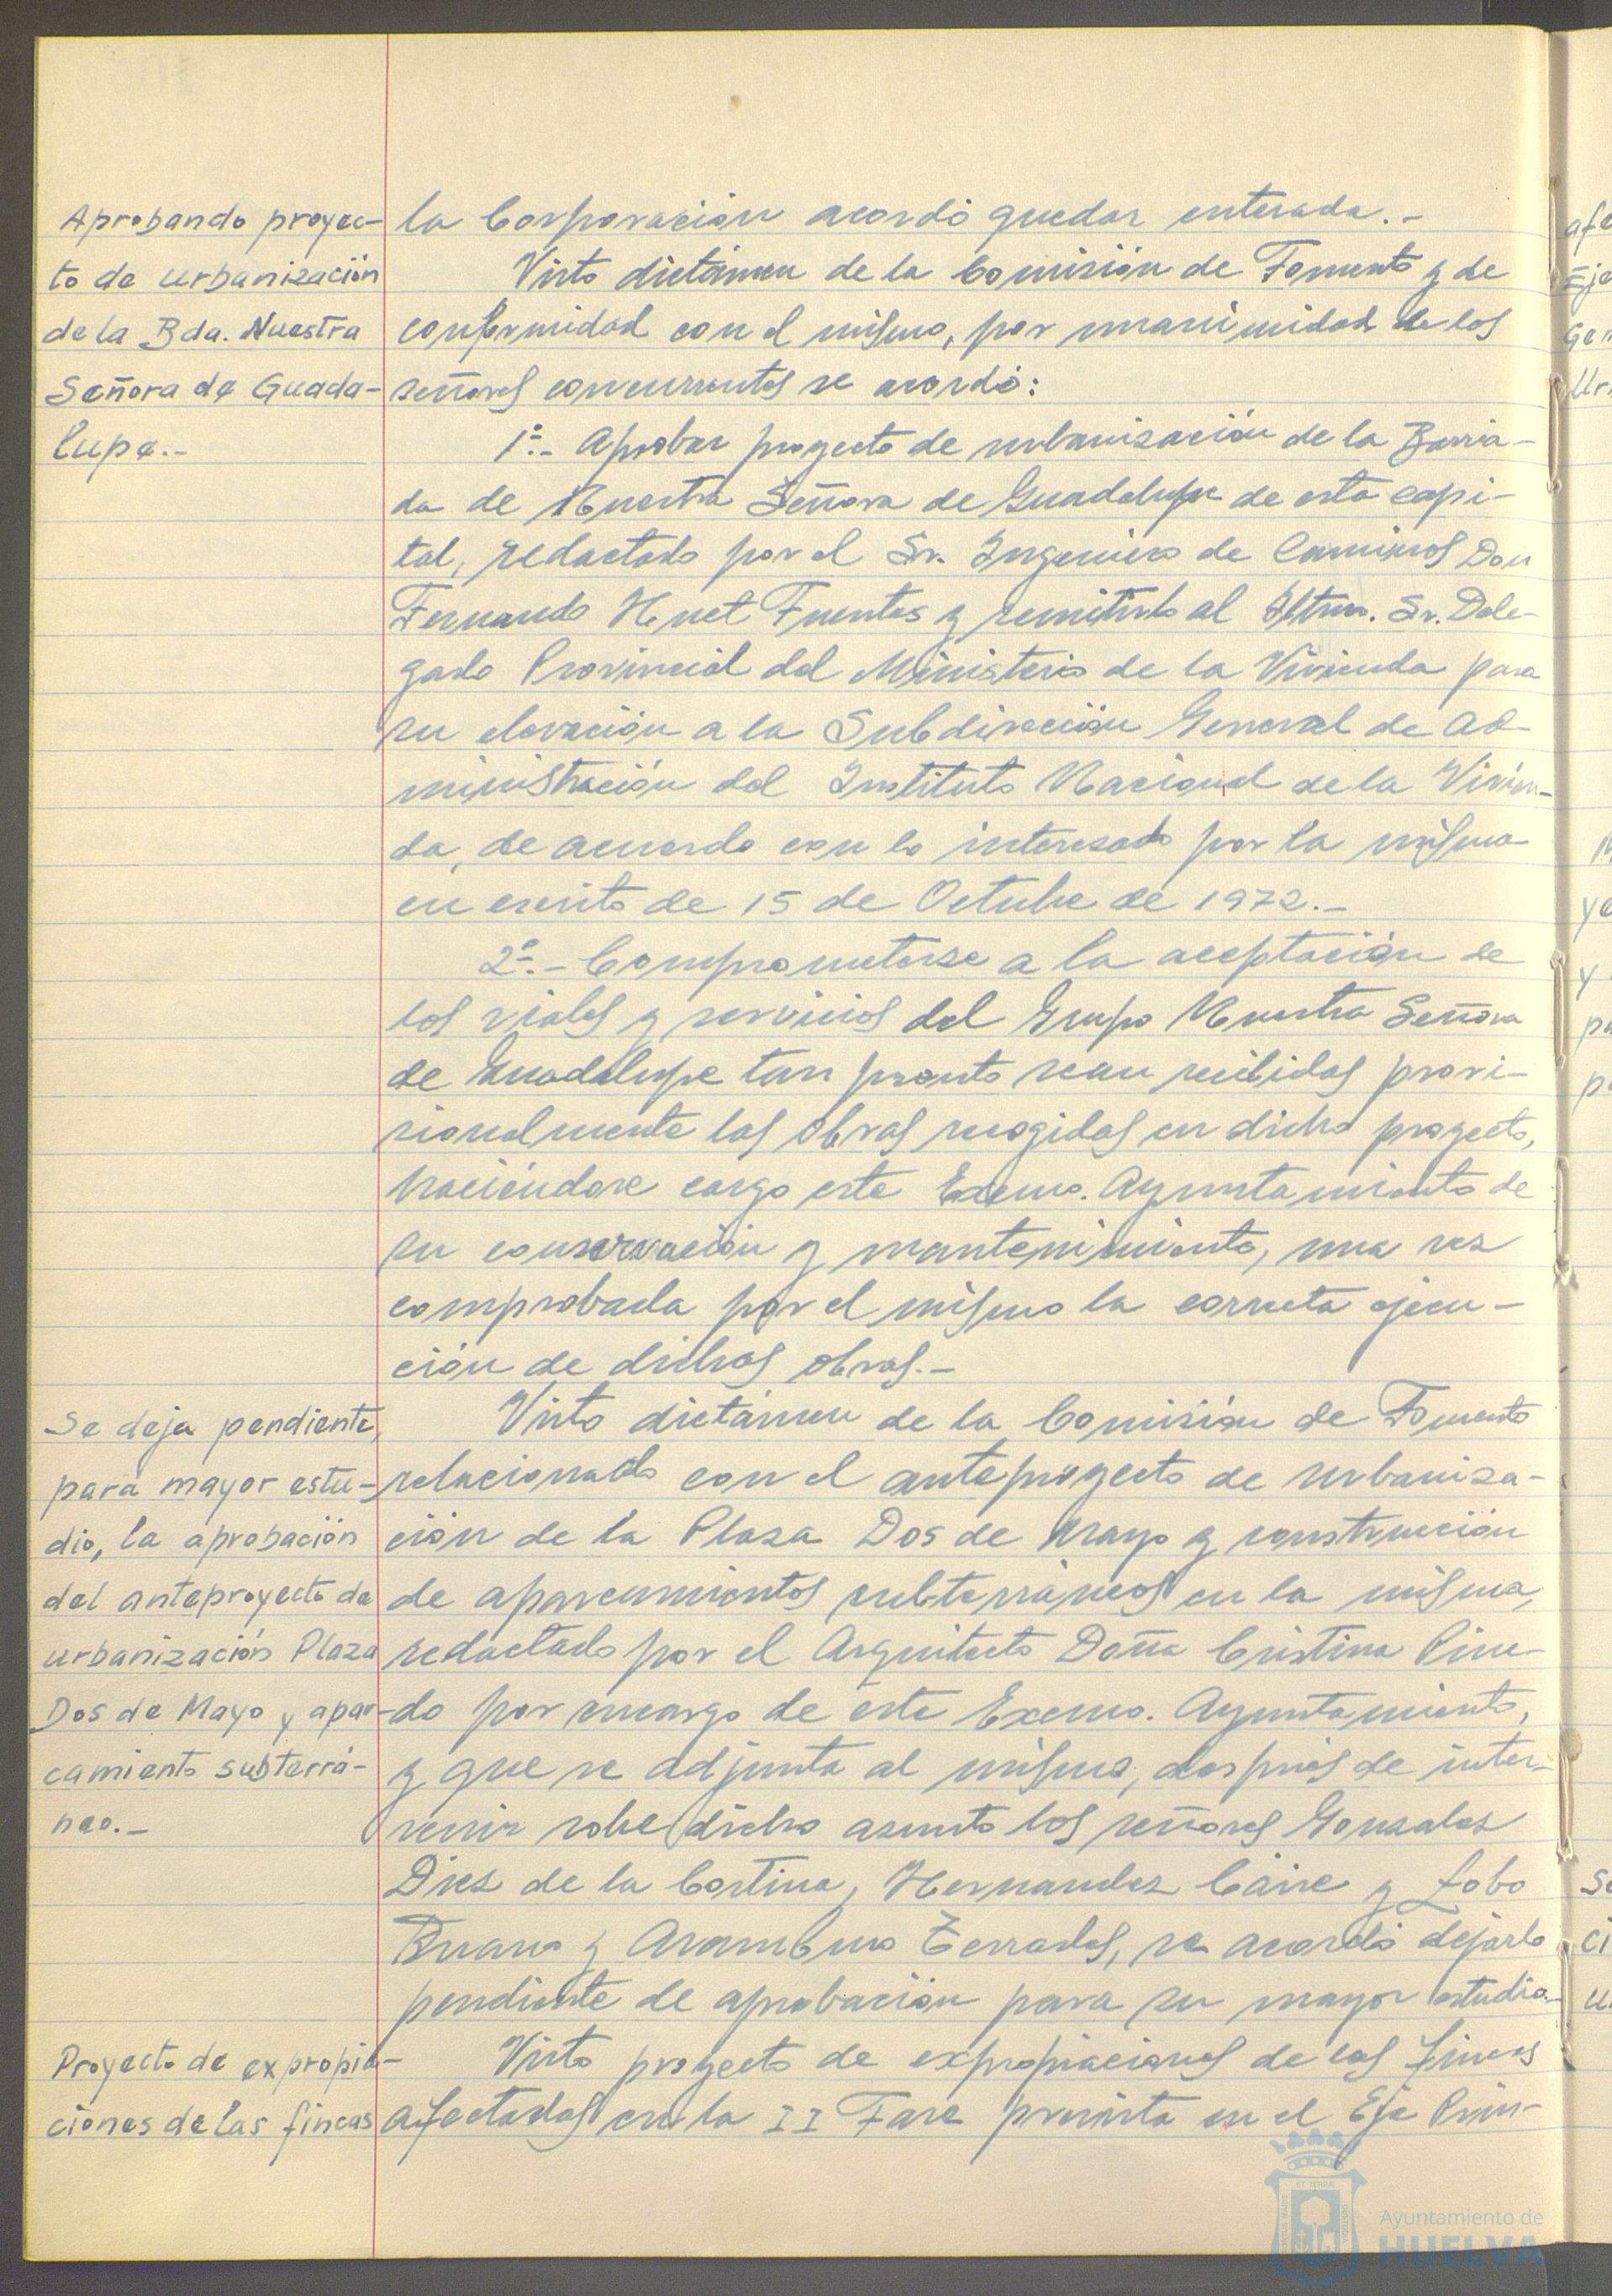 Aprobando proyec-
to de urbanización
de la Bda. Nuestra
Señora de Guada-
lupe.-
la Corporación acordó quedar enterada.-
Visto dictámen de la Comisión de Fomento y de
conformidad con el mismo, por unanimidad de los
señores concurrentes se acordó:
1º.- Aprobar proyecto de urbanización de la Barria-
da de Nuestra Señora de Guadalupe de esta capi-
tal, redactado por el Sr. Ingeniero de Caminos Don
Fernando Huet Fuentes y remitirlo al Iltmo. Sr. Dele-
gado Provincial del Ministerio de la Vivienda para
su elevación a la Subdirección General de Ad-
ministración del Instituto Nacional de la Vivien-
da, de acuerdo con lo interesado por la misma
en escrito de 15 de Octubre de 1972.-
2º.- Comprometerse a la aceptación de
los viales y servicios del Grupo Nuestra Señora
de Guadalupe tan pronto sean recibidas provi-
sionalmente las obras recogidas en dicho proyecto,
haciéndose cargo este Excmo. Ayuntamiento de
su conservación y mantenimiento, una vez
comprobada por el mismo la correcta ejecu-
ción de dichas obras.-
Se deja pendiente,
para mayor estu-
dio, la aprobación
del anteproyecto de
urbanización Plaza
Dos de Mayo y apar-
camiento subterrá-
neo.-
Visto dictámen de la Comisión de Fomento
relacionado con el anteproyecto de urbaniza-
ción de la Plaza Dos de Mayo y construcción
de aparcamientos subterráneos en la misma,
redactado por el Arquitecto Doña Cristina Pine-
do por encargo de este Excmo. Ayuntamiento,
y que se adjunta al mismo, después de inter-
venir sobre dicho asunto los señores Gonzalez
Diez de la Cortina, Hernandez Caire y Lobo
Bruano y Aramburo Terrades, se acordó dejarlo
pendiente de aprobación para su mayor estudio.-
Proyecto de expropia-
ciones de las fincas
Visto proyecto de expropiaciones de las fincas
afectadas en la II Fase prevista en el Eje Prin-
Ayuntamiento de
HUELVA